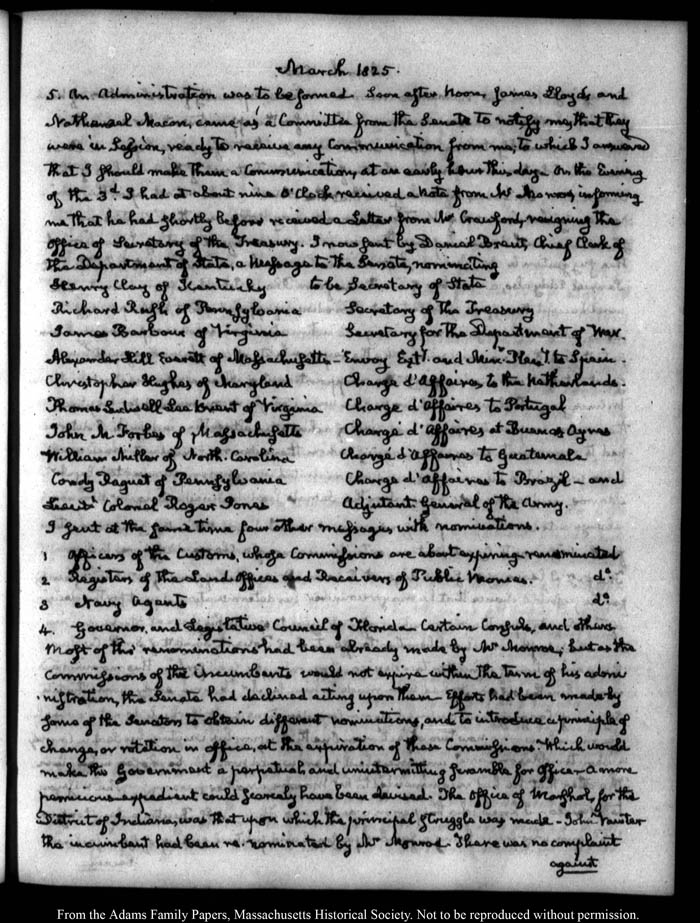 March 1825.
5. An Administration was to be formed. Soon after Noon, James Lloyd, and
Nathaniel Macon, came as a Committee from the Senate to notify me, that they
were in Session, ready to receive any Communication from me; to which I answered
that I should make them a Communication, at an early hour this day. On the Evening
of the 3.d I had at about nine O'Clock received a Note from Mr Monroe, informing
me that he had shortly before received a Letter from Mr Crawford, resigning the
Office of Secretary of the Treasury. I now sent by Daniel Brent, Chief Clerk of
the Department of State, a Message to the Senate, nominating
Henry Clay of Kentucky to be Secretary of State
Richard Rush of Pennsylvania Secretary of the Treasury
James Barbour of Virginia Secretary for the Department of War.
Alexander Hill Everett of Massachusetts - Envoy Ext.y and Min.r Plen.y to Spain.
Christopher Hughes of Maryland Chargé d'Affaires, to the Netherlands.
Thomas Ludwell Lee Brent of Virginia Chargé d'Affaires to Portugal
John M Forbes of Massachusetts Chargé d'Affaires at Buenos Ayres
William Miller of North-Carolina Chargé d'Affaires to Guatemala
Condy Raguet of Pennsylvania Chargé d'Affaires to Brazil - and
Lieut.t Colonel Roger Jones Adjutant General of the Army.
I sent at the same time four other messages with nominations.
1 Officers of the Customs, whose Commissions are about expiring renominated
2 Registers of the Land Offices and Receivers of Public Monies. do.
3 Navy Agents do.
4. Governor, and Legislative Council of Florida Certain Consuls, and others
Most of the renominations had been already made by Mr Monroe; but as the
Commissions of the Incumbents would not expire within the term of his admi
nistration, the Senate had declined acting upon them - Efforts had been made by
some of the Senators to obtain different nominations, and to introduce a principle of
change, or rotation in office, at the expiration of these Commissions: Which would
make the Government a perpetual and unintermitting scramble for Office - A more
pernicious expedient could scarcely have been devised. The Office of Marshal for the
District of Indiana, was that upon which the principal struggle was made - John Vawter
the incumbent had been re-nominated by Mr Monroe. There was no complaint
against
From the Adams Family Papers, Massachusetts Historical Society. Not to be reproduced without permission.